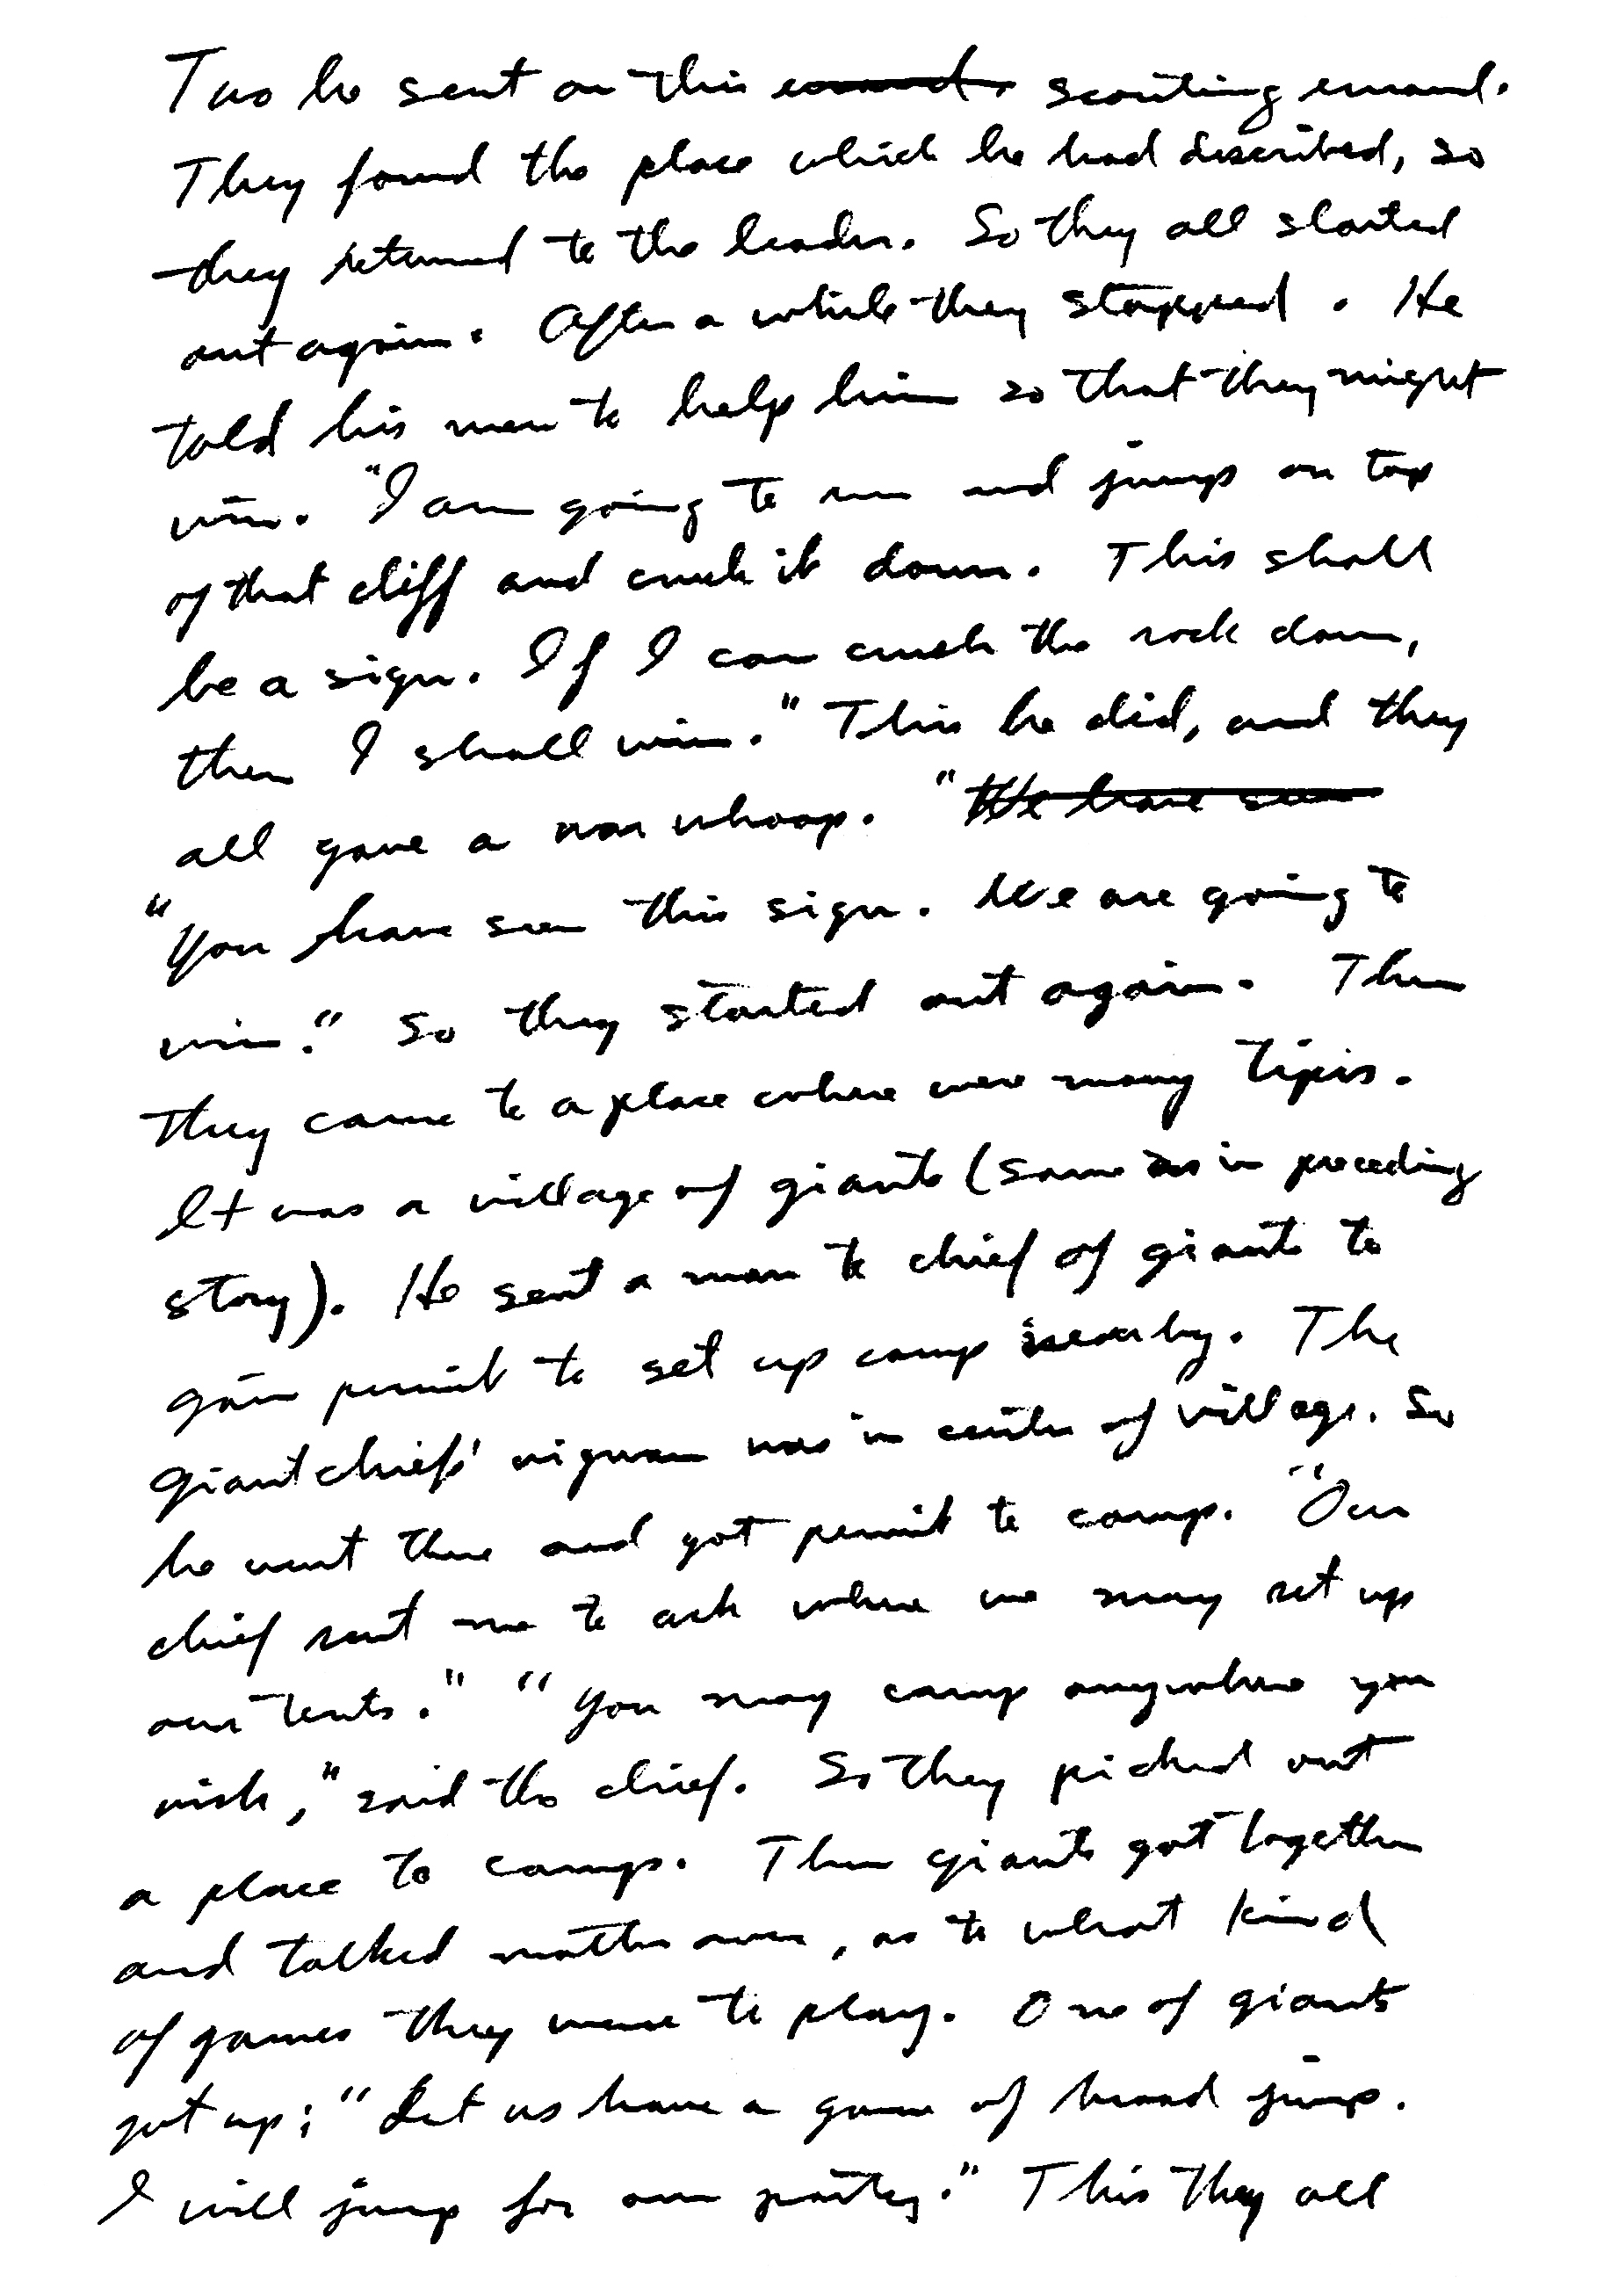 Two he sent on this errand. scouting errand.
They found the place which he had described, so
they returned to the leader. So they all started
out again. After a while they stopped. He
told his men to help him so that they might
win. "I am going to run and jump on top
of that cliff and crush it down. This shall
be a sign. If I can crush the rock down,
then I shall win." This he did, and they
all gave a war whoop. "We have seen
"You have seen this sign. We are going to
win." So they started out again. Then
they came to a place where were many tipis.
It was a village of giants (same as in preceding
story). He sent a man to chief of giants to
gain permit to set up camp nearby. The
giant chiefs' wigwam was in center of village. So
he went there and got permit to camp. "Our
chief sent me to ask where we may set up
our tents." "You may camp anywhere you
wish," said the chief. So they picked out
a place to camp. Then giants got together
and talked matter over, as to what kind
of games they were to play. One of giants
got up; "Let us have a game of broad jump.
I will jump for our party." This they all